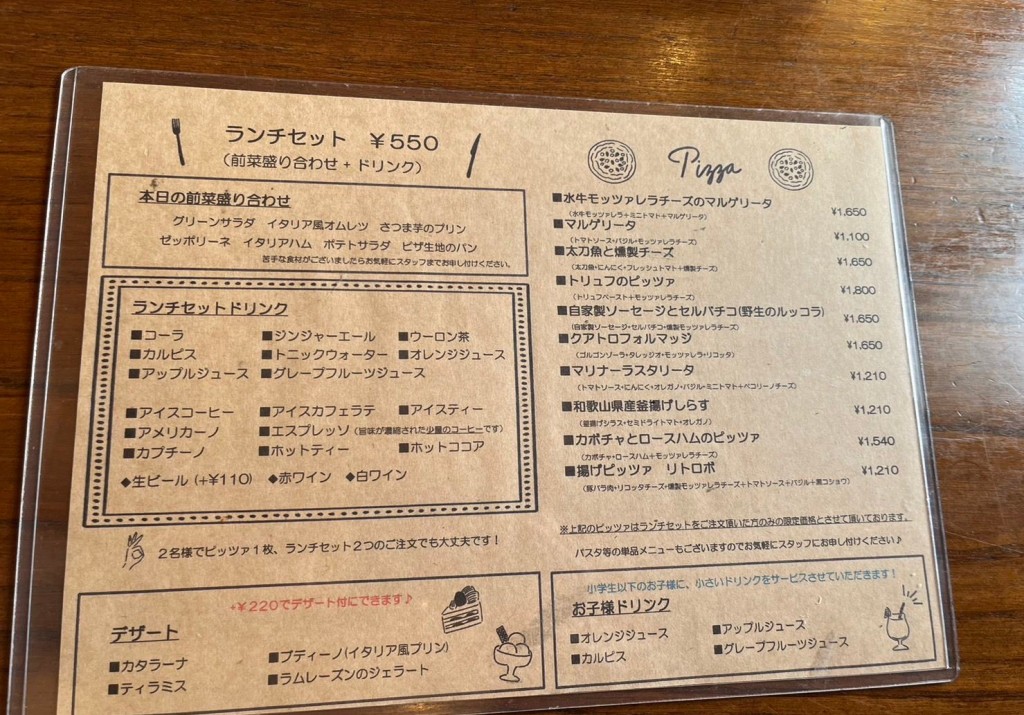 ランチセット ￥550
(前菜盛り合わせ + ドリンク)
本日の前菜盛り合わせ
グリーンサラダ イタリア風オムレツ さつま芋のプリン
ゼッポリーネ イタリアハム ポテトサラダ ピザ生地のパン
苦手な食材がございましたらお気軽にスタッフまでお申し付けください。
ランチセットドリンク
■コーラ ■ジンジャーエール ■ウーロン茶
■カルピス ■トニックウォーター ■オレンジジュース
■アップルジュース ■グレープフルーツジュース
■アイスコーヒー ■アイスカフェラテ ■アイスティー
■アメリカーノ ■エスプレッソ (旨味が濃縮された少量のコーヒーです)
■カプチーノ ■ホットティー ■ホットココア
◆生ビール (+¥110) ◆赤ワイン ◆白ワイン
2名様でピッツァ1枚、ランチセット2つのご注文でも大丈夫です！
+￥220でデザート付にできます♪
デザート
■カタラーナ ■ブティーノ(イタリア風プリン)
■ティラミス ■ラムレーズンのジェラート
Pizza
■水牛モッツァレラチーズのマルゲリータ ¥1,650
(水牛モッツァレラ+ミニトマト+マルゲリータ)
■マルゲリータ ¥1,100
(トマトソース・バジル・モッツァレラチーズ)
■太刀魚と燻製チーズ ¥1,650
(太刀魚・にんにく・フレッシュトマト+燻製チーズ)
■トリュフのピッツァ ¥1,800
(トリュフペースト+モッツァレラチーズ)
■自家製ソーセージとセルバチコ(野生のルッコラ) ¥1,650
(自家製ソーセージ・セルバチコ・燻製モッツァレラチーズ)
■クアトロフォルマッジ ¥1,650
(ゴルゴンゾーラ・タレッジオ・モッツァレラ・リコッタ)
■マリナーラスタリータ ¥1,210
(トマトソース・にんにく・オレガノ・バジル・ミニトマト+ペコリーノチーズ)
■和歌山県産釜揚げしらす ¥1,210
(釜揚げシラス・セミドライトマト・オレガノ)
■カボチャとロースハムのピッツァ ¥1,540
(カボチャ・ロースハム+モッツァレラチーズ)
■揚げピッツァ リトロボ ¥1,210
(豚バラ肉・リコッタチーズ・燻製モッツァレラチーズ+トマトソース+バジル+黒コショウ)
※上記のピッツァはランチセットをご注文頂いた方のみの限定価格とさせて頂いております。
パスタ等の単品メニューもございますのでお気軽にスタッフにお申し付けください♪
小学生以下のお子様に、小さいドリンクをサービスさせていただきます！
お子様ドリンク
■オレンジジュース ■アップルジュース
■カルピス ■グレープフルーツジュース